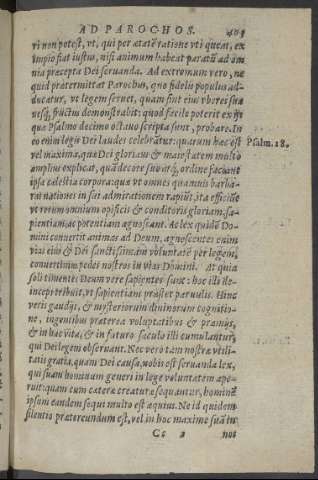 AD PAROCHOS. 403
ri non potest, vt, qui per ætatẽ ratione vti queat, ex
impio fiat iustus, nisi animum habeat paratũ ad om
nia præcepta Dei seruanda. Ad extremum vero, ne
quid prætermittat Parochus, quo fidelis populus ad-
ducatur, vt legem seruet, quam sint eius vberes sua
uesq́; fructus demonstrabit: quod facile poterit ex ijs
quæ Psalmo decimo octauo scripta sunt, probare. In
eo enim legis Dei laudes celebrãtur: quarum hæc est
Psalm. 18.
vel maxima, quæ Dei gloriam & maiestatem multo
amplius explicat, quã decore suo atq́; ordine faciant
ipsa cælestia corpora: quæ vt omnes quamuis barba-
ras nationes in sui admirationem rapiũt, ita efficiũt
vt rerum omnium opificis & conditoris gloriam, sa-
pientiam, ac potentiam agnoscant. Ac lex quidẽ Do-
mini conuertit animas ad Deum, agnoscentes enim
vias eius & Dei sanctissimam voluntatẽ per legem,
conuertimus pedes nostros in vias Domini. At quia
soli timentes Deum vere sapientes sunt: hoc illi de-
inceps tribuit, vt sapientiam præstet paruulis. Hinc
veris gaudijs, & mysteriorum diuinorum cognitio-
ne, ingentibus præterea voluptatibus & præmijs,
& in hac vita, & in futuro sæculo illi cumulantur,
qui Dei legem obseruant. Nec vero tam nostræ vtili-
tatis gratia, quam Dei causa, nobis est seruanda lex,
qui suam hominum generi in lege voluntatem ape-
ruit: quam cum cæteræ creaturæ sequantur, hominẽ
ipsum eandem sequi multo est æquius. Ne id quidem
silentio prætereundum est, vel in hoc maxime suã in
Cc 2 nos